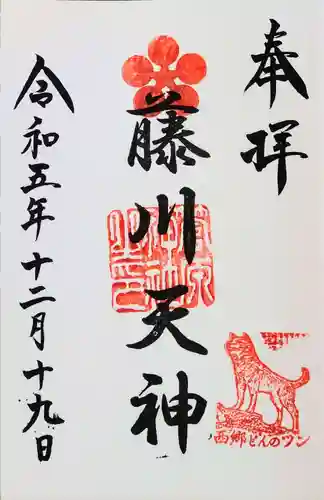 奉拝
藤川天神
令和五年十二月十九日
西郷どんのツン